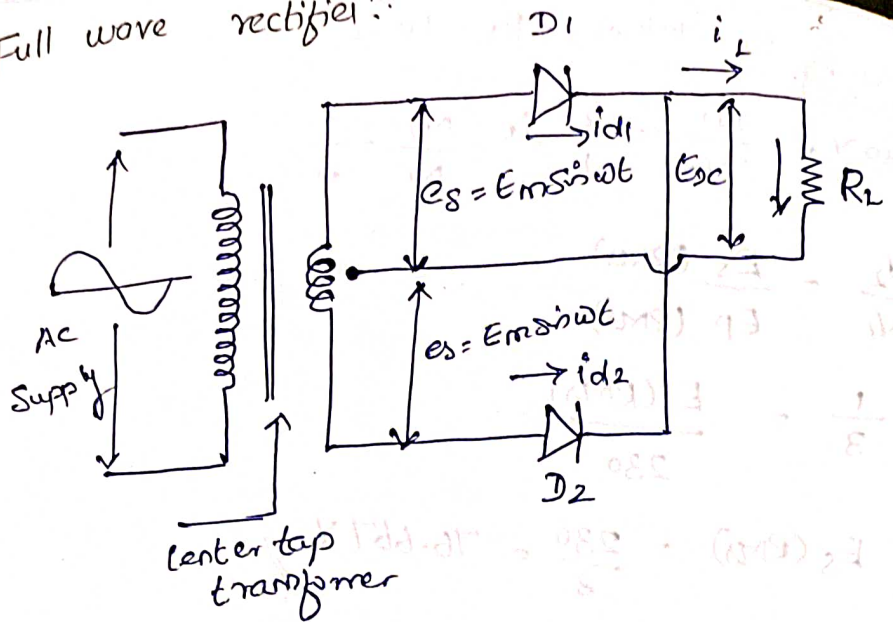 Full wave rectifier:
D1
iL
id1
es = Em sin ωt
EDC
RL
AC
Supply
es = Em sin ωt
id2
D2
center tap
transformer